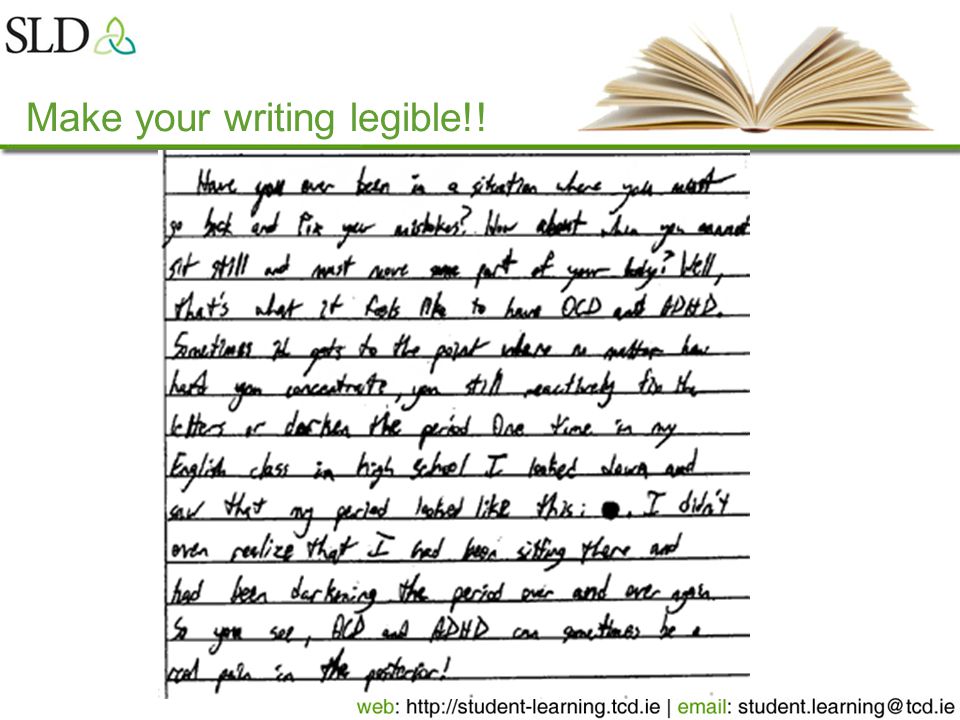 SLD
Make your writing legible!!
Have you ever been in a situation where you must
go back and fix your mistakes? How about when you cannot
sit still and must move some part of your body? Well,
that's what it feels like to have OCD and ADHD.
Sometimes it gets to the point where no matter how
hard you concentrate, you still reactively fix the
letters or darken the period One time in my
English class in high school I looked down and
saw that my period looked like this: ●. I didn't
even realize that I had been sitting there and
had been darkening the period over and over again.
So you see, OCD and ADHD can sometimes be a
real pain in the posterior!
web: http://student-learning.tcd.ie | email: student.learning@tcd.ie